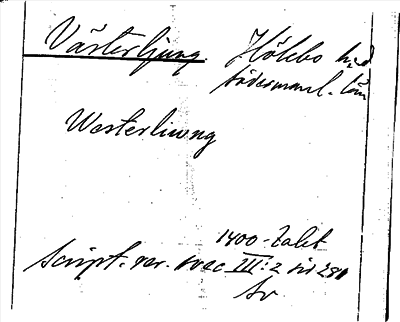 Västerljung. Hölebo hd
Södermanl. län
Westerliwng
1400-talet
Script. rer. svec III:2 sid 281
Sv